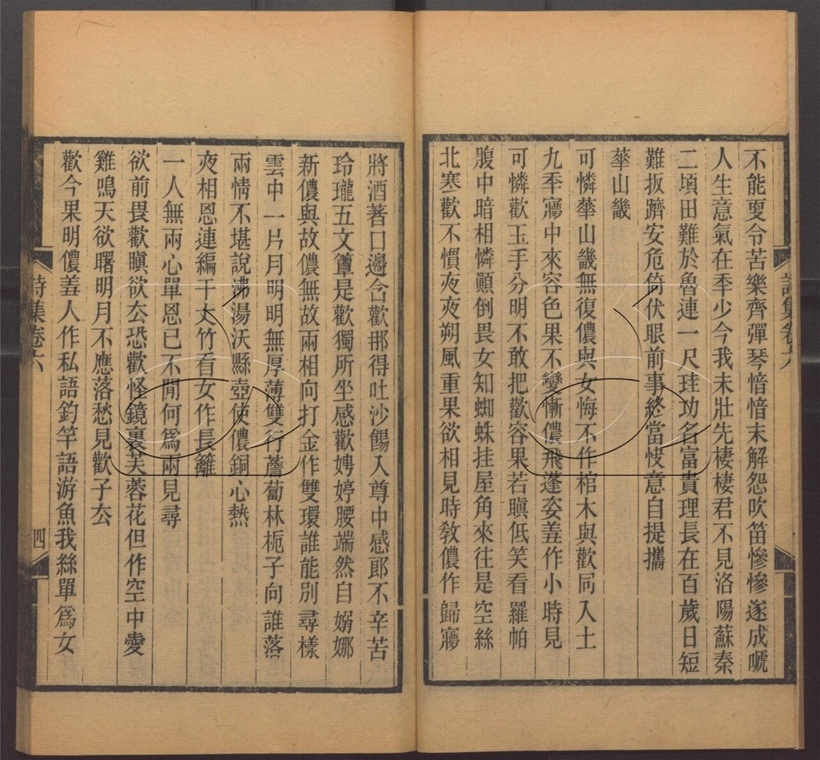 不能更令苦樂齊彈琴愔愔未解怨吹笛慘慘遂成嘶
人生意氣在季少今我未壯先棲棲君不見洛陽蘇秦
二頃田難於魯連一尺珪功名富貴理長在百歲日短
難扳躋安危倚伏眼前事終當快意自提攜
華山畿
可憐華山畿無復儂與女悔不作棺木與歡同入土
九季寤中來容色果不變慚儂飛蓬姿羞作小時見
可憐歡玉手分明不敢把歡容果若瞋低笑看羅帕
腹中暗相憐顚倒畏女知蜘蛛挂屋角來往是空絲
北寒歡不慣夜夜朔風重果欲相見時敎儂作歸寤
詩集卷六
將酒著口邊含歡那得吐沙餳入尊中感郞不辛苦
玲瓏五文簟是歡獨所坐感歡娉婷腰端然自婀娜
新儂與故儂無故兩相向打金作雙環誰能別尋樣
雲中一片月明明無厚薄雙行薝蔔林梔子向誰落
兩情不堪說沸湯沃縣壺使儂銅心熱
夜相思連編千丈竹看女作長籬
一人無兩心單恩已不閒何爲兩見尋
欲前畏歡瞋欲去恐歡怪鏡裏芙蓉花但作空中愛
雞鳴天欲曙明月不應落愁見歡子去
歡今果明儂羞人作私語釣竿語游魚我絲單爲女
詩集卷六
四